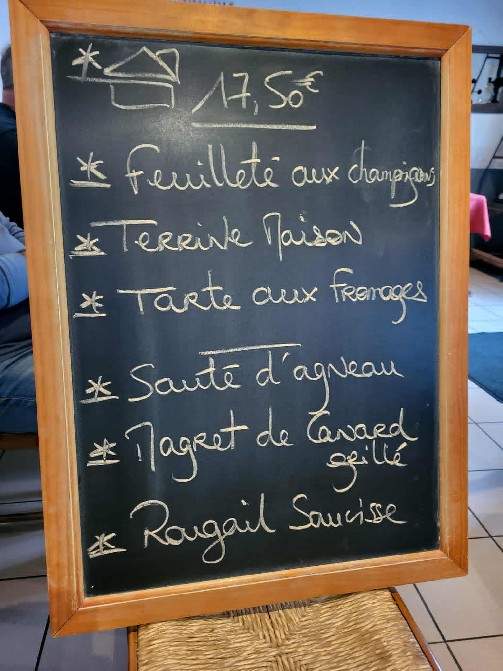 * 17,50€
* Feuilleté aux champignons
* Terrine Maison
* Tarte aux Fromages
* Sauté d'agneau
* Magret de Canard
grillé
* Rougail Saucisse